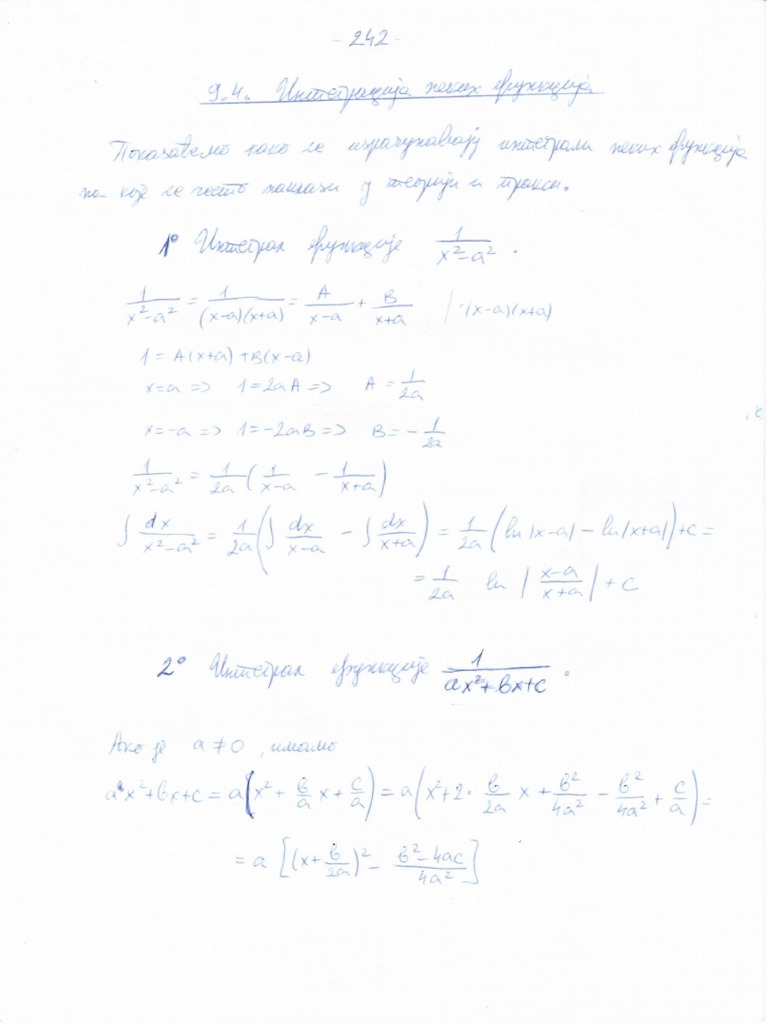 - 242 -
9.4. Интеграција неких функција
Показаћемо како се израчунавају интеграли неких функција
на које се често наилази у теорији и пракси.
1° Интеграл функције 1/(x²-a²).
1/(x²-a²) = 1/((x-a)(x+a)) = A/(x-a) + B/(x+a) | ·(x-a)(x+a)
1 = A(x+a) + B(x-a)
x=a => 1=2aA => A = 1/2a
x=-a => 1=-2aB => B = -1/2a
1/(x²-a²) = 1/2a (1/(x-a) - 1/(x+a))
∫ dx/(x²-a²) = 1/2a (∫ dx/(x-a) - ∫ dx/(x+a)) = 1/2a (ln|x-a| - ln|x+a|) + C =
= 1/2a ln |(x-a)/(x+a)| + C
2° Интеграл функције 1/(ax²+bx+c).
Ако је a ≠ 0, имамо
ax²+bx+c = a(x² + b/a x + c/a) = a(x² + 2· b/2a x + b²/4a² - b²/4a² + c/a) =
= a [(x + b/2a)² - (b²-4ac)/4a²]